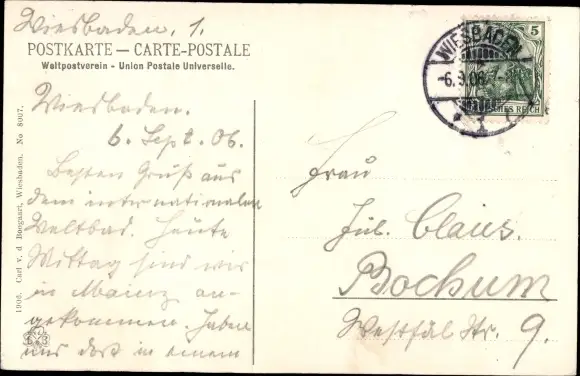 Wiesbaden, 1.
POSTKARTE — CARTE-POSTALE
Weltpostverein - Union Postale Universelle.
Wiesbaden.
6. Sept. 06.
Besten Gruß aus
dem internationalen
Weltbad. Heute
Mittag sind wir
in Mainz an-
gekommen. Haben
uns dort in einem
1906. Carl v. d. Boogaart, Wiesbaden. No 8007.
5
WIESBADEN
-6.9.06. 7-
1
DEUTSCHES REICH
Frau
Jul. Claus.
Bochum
Westfäl Str. 9.